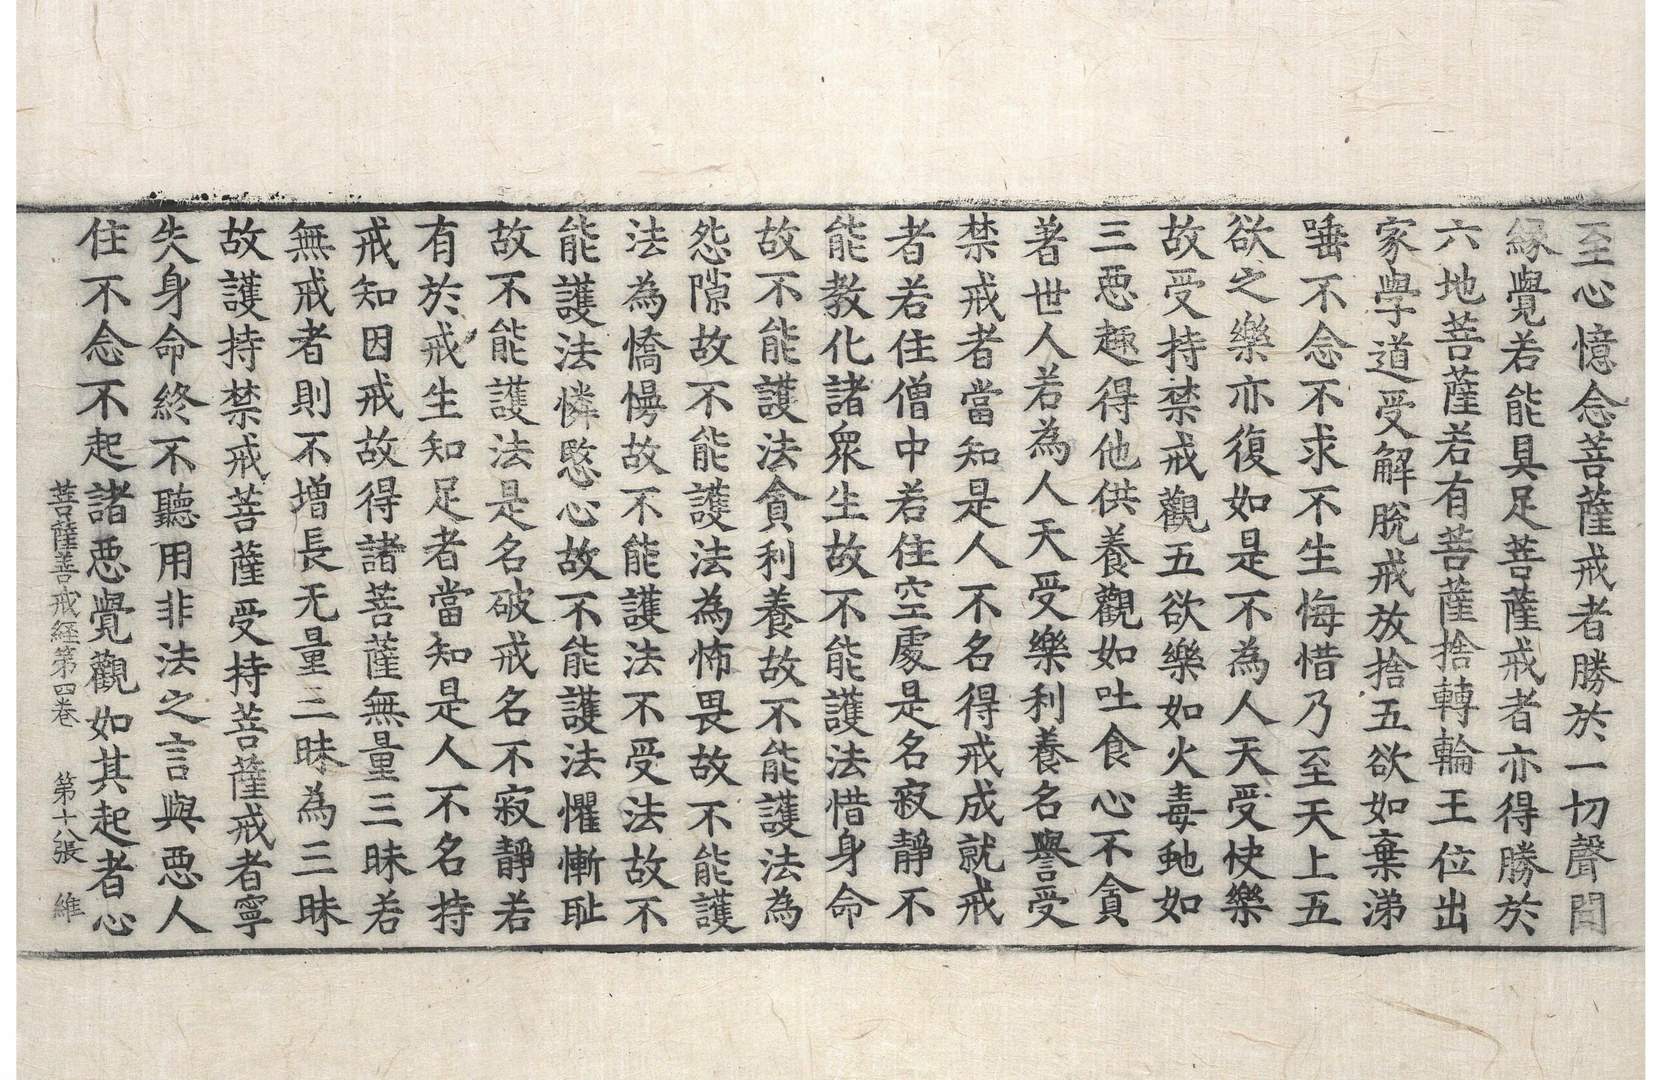 至心憶念菩薩戒者勝於一切聲聞
緣覺若能具足菩薩戒者亦得勝於
六地菩薩若有菩薩捨轉輪王位出
家學道受解脫戒放捨五欲如棄涕
唾不念不求不生悔惜乃至天上五
欲之樂亦復如是不為人天受快樂
故受持禁戒觀五欲樂如火毒虵如
三惡趣得他供養觀如吐食心不貪
著世人若為人天受樂利養名譽受
禁戒者當知是人不名得戒成就戒
者若住僧中若住空處是名寂靜不
能教化諸衆生故不能護法惜身命
故不能護法貪利養故不能護法為
怨隙故不能護法為怖畏故不能護
法為憍慢故不能護法不受法故不
能護法憐愍心故不能護法懼慚耻
故不能護法是名破戒名不寂靜若
有於戒生知足者當知是人不名持
戒知因戒故得諸菩薩無量三昧若
無戒者則不增長无量三昧為三昧
故護持禁戒菩薩受持菩薩戒者寧
失身命終不聽用非法之言與惡人
住不念不起諸惡覺觀如其起者心
菩薩善戒經第四卷 第十八張 維